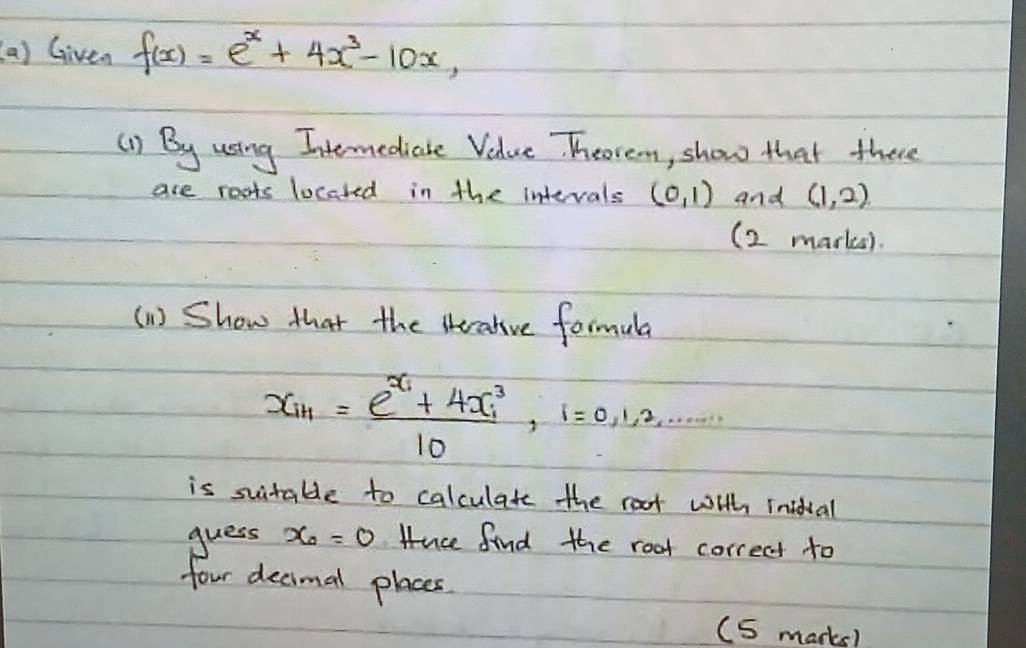 (a) Given f(x) = e^x + 4x^3 - 10x,
(i) By using Intermediate Value Theorem, show that there
are roots located in the intervals (0,1) and (1,2).
(2 marks).
(ii) Show that the iterative formula
x_{i+1} = (e^{x_i} + 4x_i^3)/10, i = 0,1,2,.......
is suitable to calculate the root with initial
guess x_0 = 0. Hence find the root correct to
four decimal places.
(5 marks)